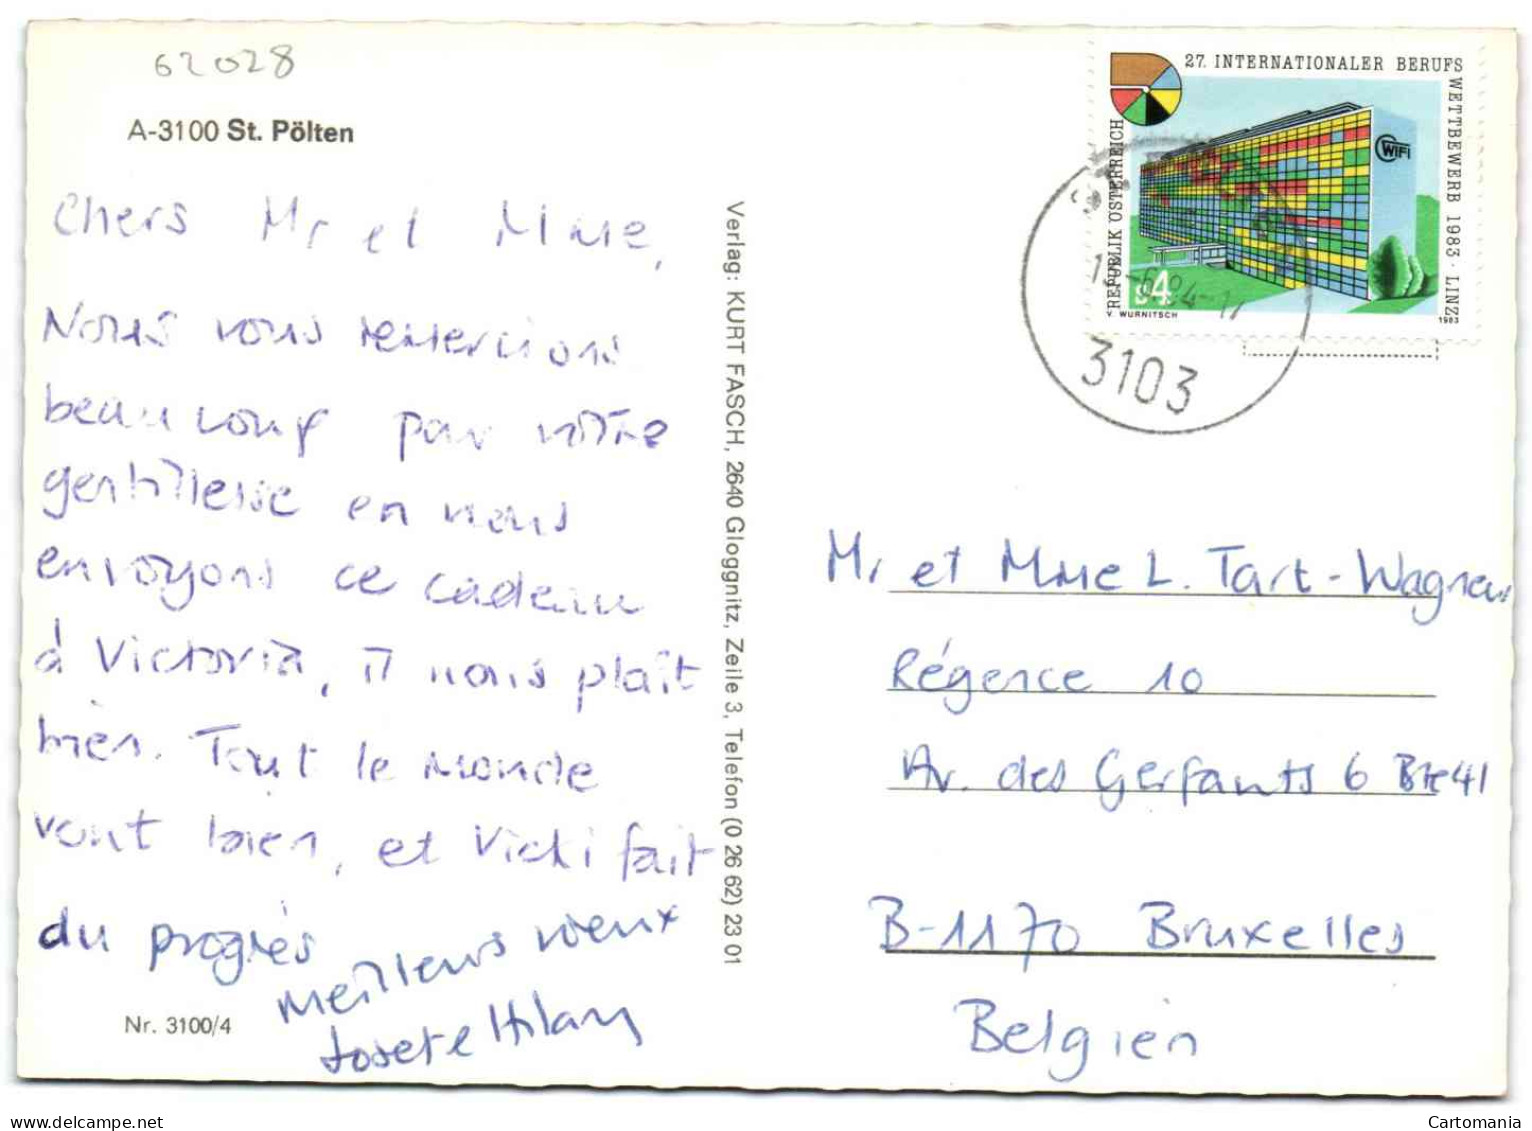 62028
A-3100 St. Pölten
Chers Mr et Mme,
Nous vous remercions
beaucoup par vôtre
gentillesse en nous
envoyons ce cadeau
á Victoria, il nous plaît
bien. Tout le monde
vont bien, et Vicki fait
du progrès
Meilleurs voeux
Nr. 3100/4
Verlag: KURT FASCH, 2640 Gloggnitz, Zeile 3, Telefon (0 26 62) 23 01
27. INTERNATIONALER BERUFS
WETTBEWERB 1983 · LINZ
REPUBLIK ÖSTERREICH
WIFI
S4
V. WURNITSCH
1983
3103
Mr et Mme L. Tart-Wagneur
Régence 10
Av. des Gerfants 6 Bte 41
B-1170 Bruxelles
Belgien
www.delcampe.net
Cartomania